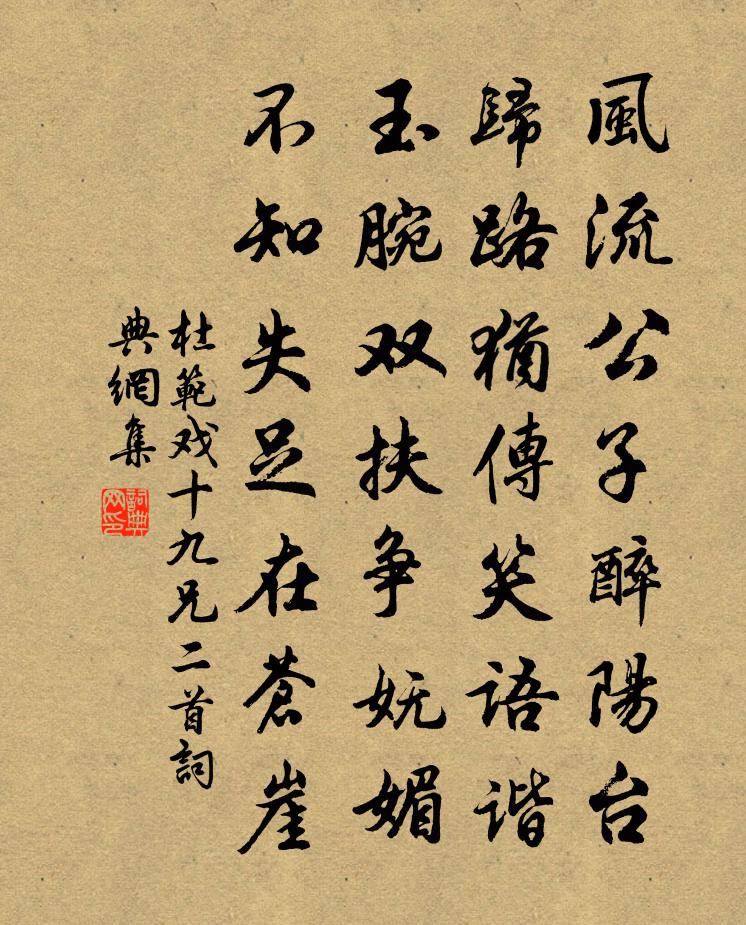 風流公子醉陽台
歸路猶傳笑語谐
玉腕双扶争妩媚
不知失足在蒼崖
杜範戏十九兄二首詞
典網集
詞典网印